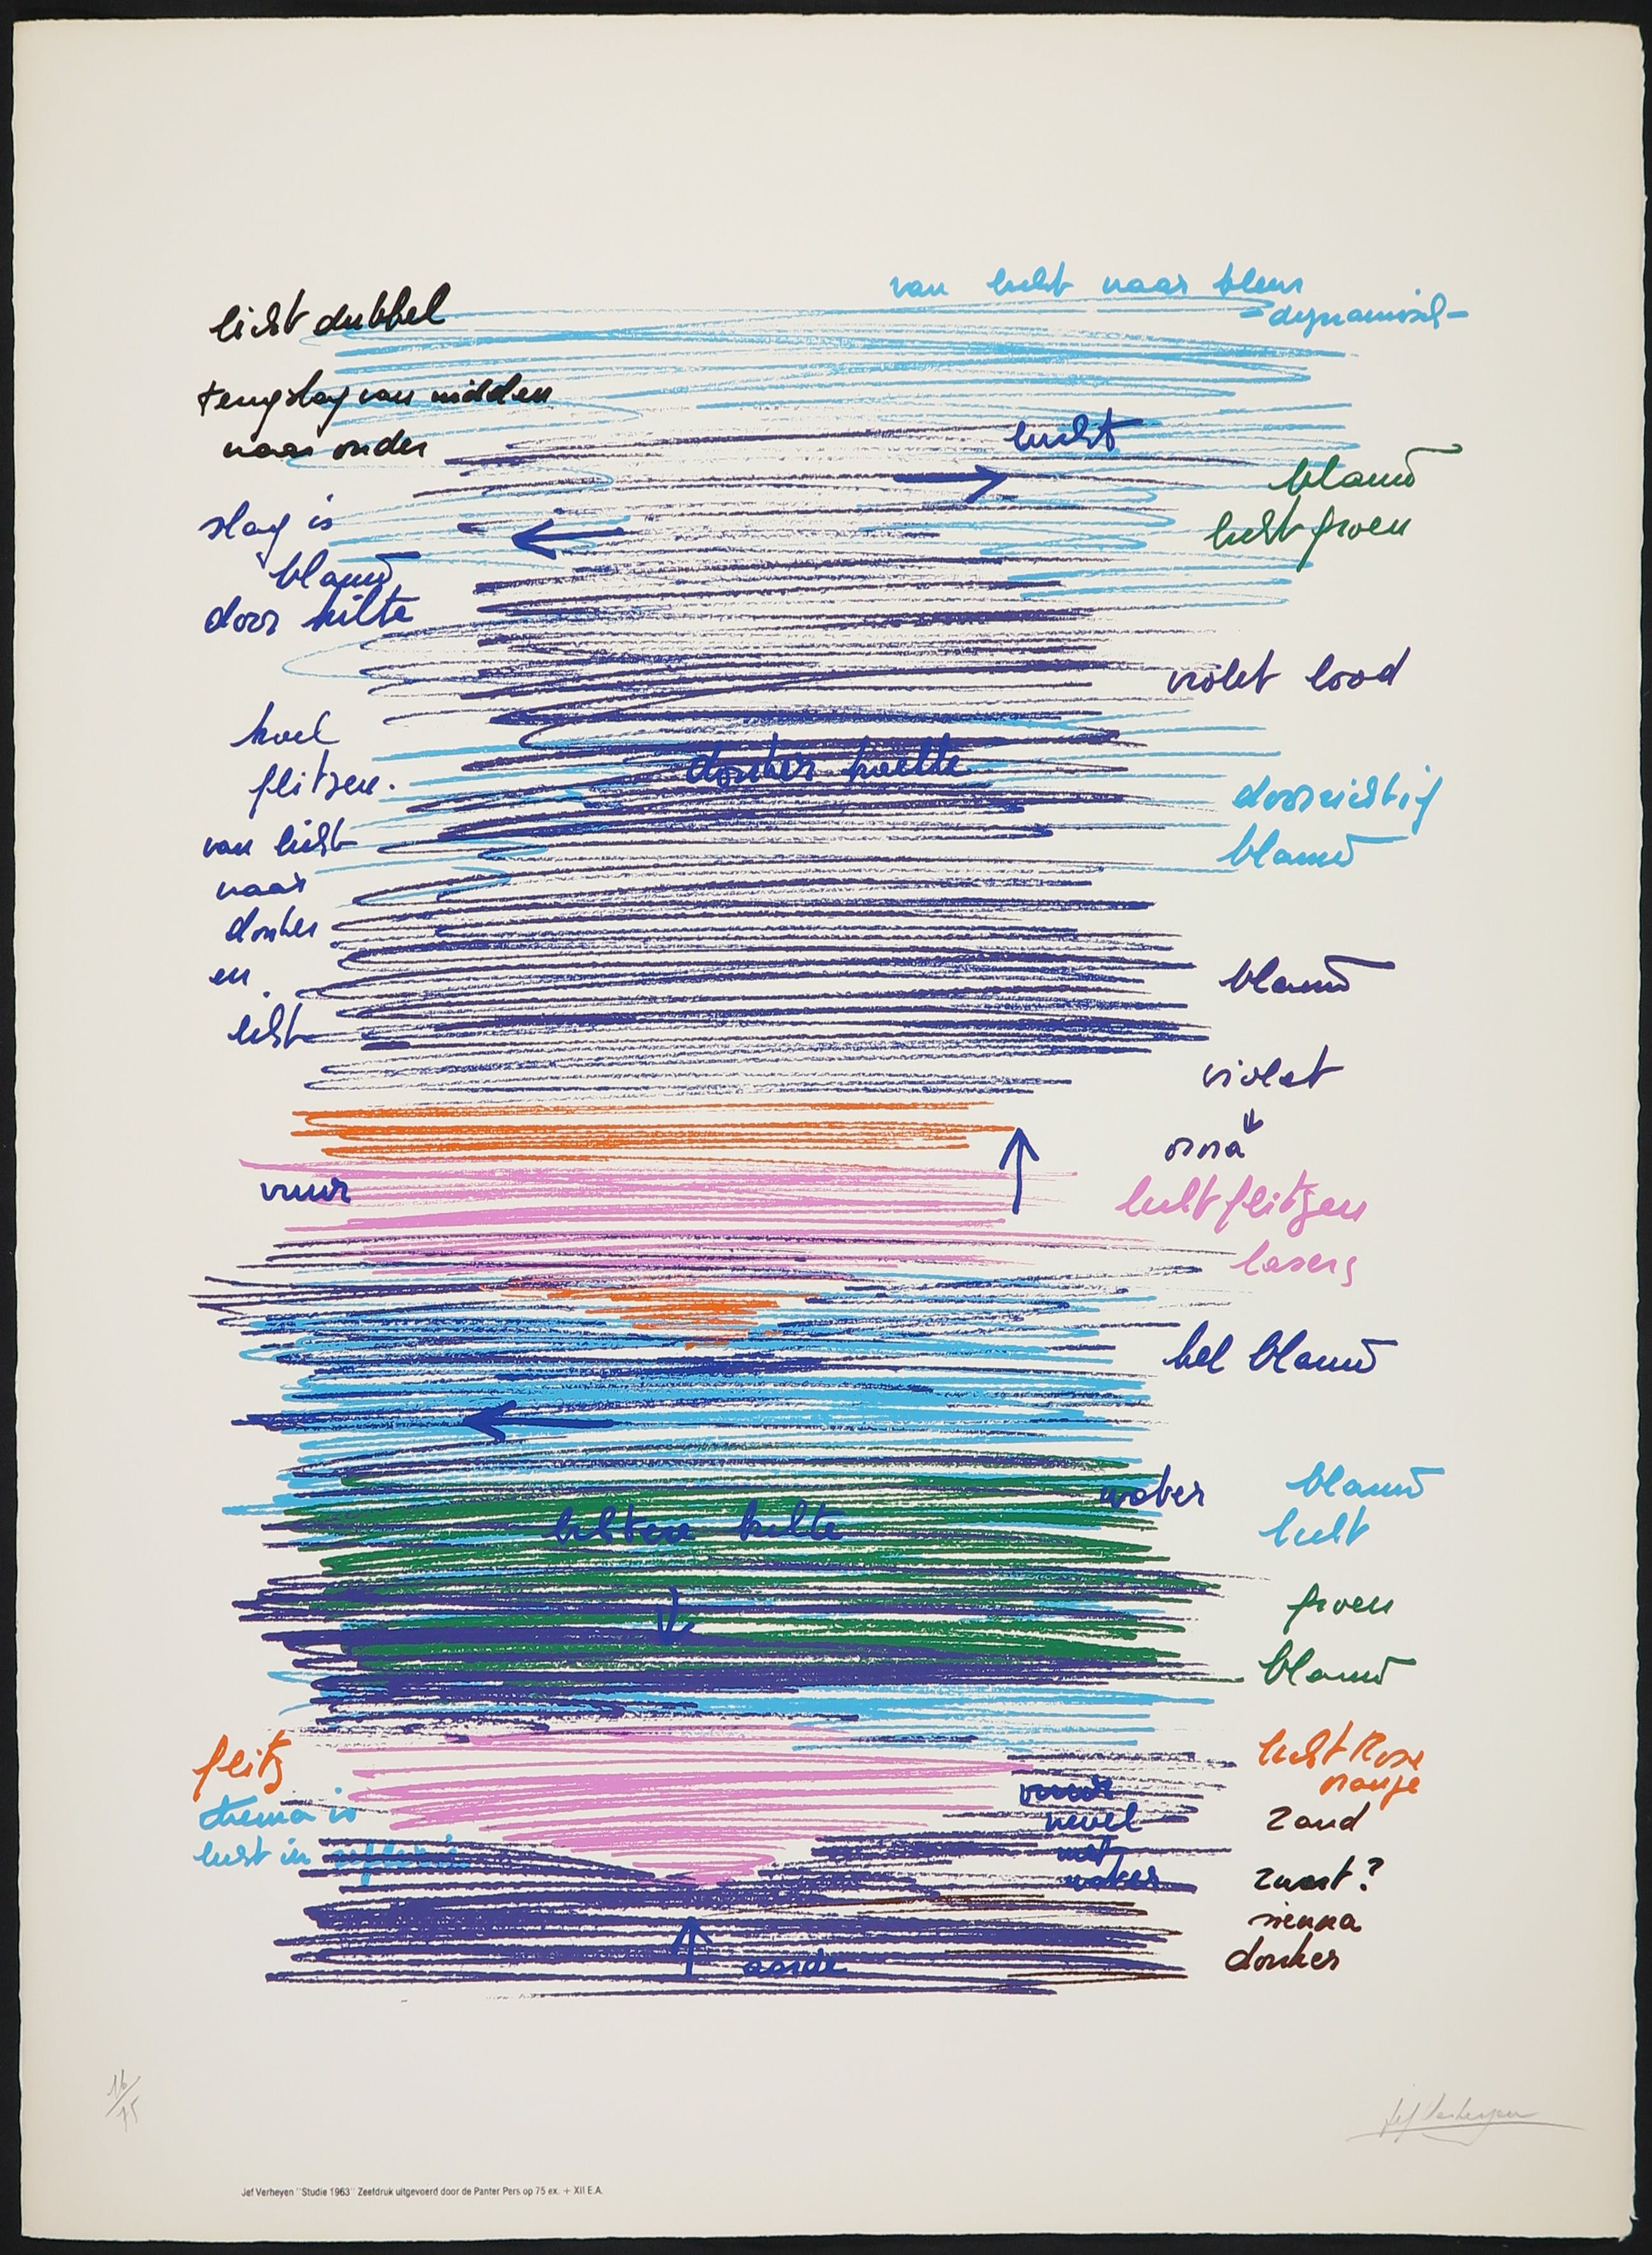 van licht naar kleur
dynamisch
licht dubbel
terugslag van midden
naar onder
lucht
blauw
licht groen
slag is
blauw
door kilte
violet lood
koel
flitsen.
donker koelte
doorzichtig
blauw
van licht
naar
donker
en
licht
blauw
violet
vuur
licht flitsen
lasers
hel blauw
water
blauw
licht
lichtere kilte
groen
blauw
flitz
licht Rose
oranje
thema is
licht in
nevel
met
water
zand
zwart?
sienna
donker
aarde
16/75
Jef Verheyen
Jef Verheyen "Studie 1963" Zeefdruk uitgevoerd door de Panter Pers op 75 ex. + XII E.A.